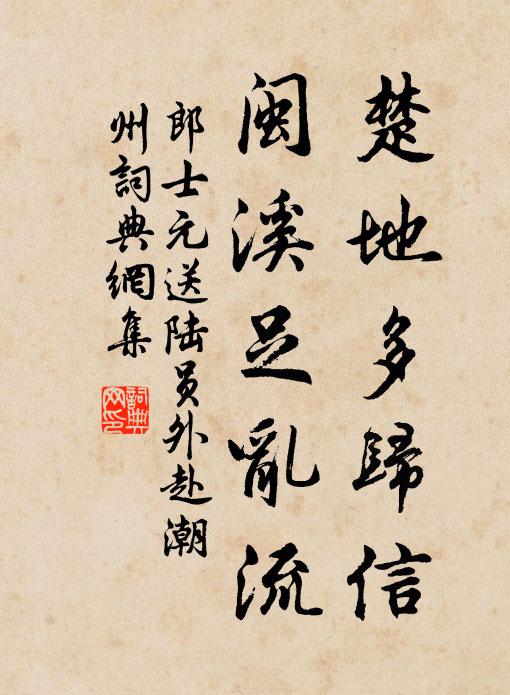 楚地多歸信
閩溪足亂流
郎士元送陆员外赴潮
州詞典網集
詞典
网印